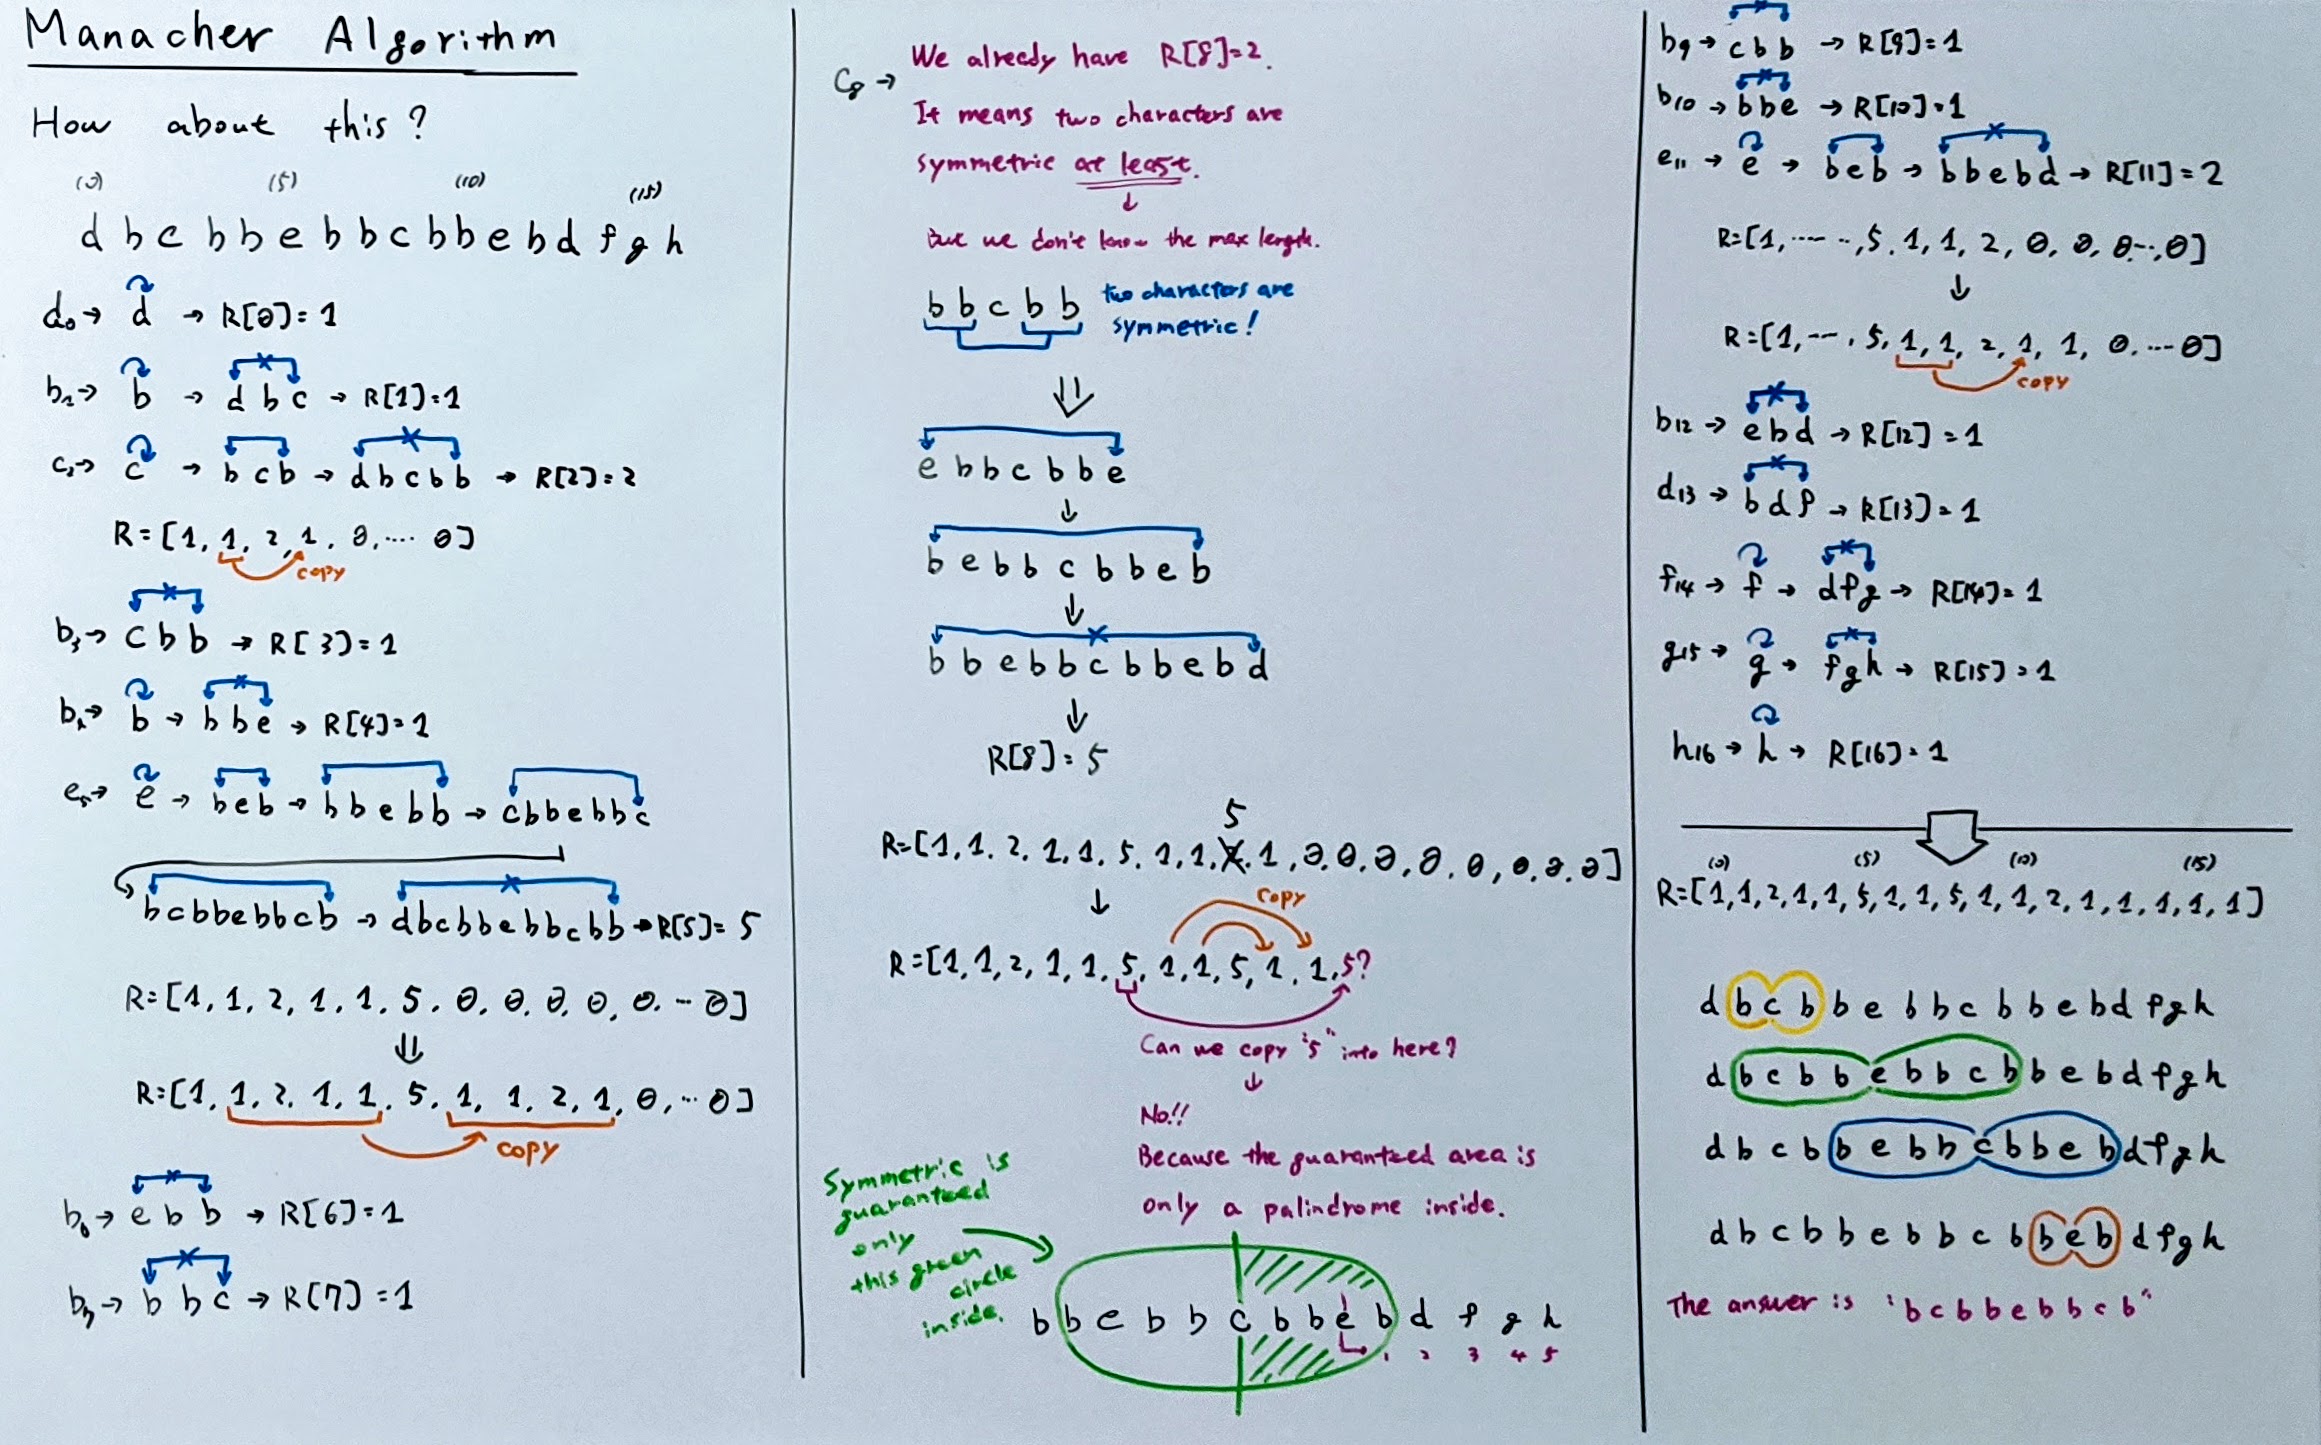 Manacher Algorithm
How about this?
(0) (5) (10) (15)
d b c b b e b b c b b e b d f g h
d0→ d → R[0]=1
b1→ b → d b c → R[1]=1
c2→ c → b c b → d b c b b → R[2]=2
R=[1, 1, 2, 1, 0, .... 0]
copy
b3→ c b b → R[3]=1
b4→ b → b b e → R[4]=1
e5→ e → b e b → b b e b b → c b b e b b c
b c b b e b b c b → d b c b b e b b c b b → R[5]=5
R=[1, 1, 2, 1, 1, 5, 0, 0, 0, 0, 0, ... 0]
⇓
R=[1, 1, 2, 1, 1, 5, 1, 1, 2, 1, 0, ... 0]
copy
b6→ e b b → R[6]=1
b7→ b b c → R[7]=1
c8→
We already have R[8]=2.
It means two characters are
symmetric at least.
↓
But we don't know the max length.
b b c b b
two characters are
symmetric!
⇓
e b b c b b e
↓
b e b b c b b e b
↓
b b e b b c b b e b d
↓
R[8]=5
5
R=[1, 1, 2, 1, 1, 5, 1, 1, 2, 1, 0, 0, 0, 0, 0, 0, 0, 0]
↓
copy
R=[1, 1, 2, 1, 1, 5, 1, 1, 5, 1, 1, 5?
Can we copy "5" into here?
↓
No!!
Because the guaranteed area is
only a palindrome inside.
Symmetric is
guaranteed
only
this green
circle
inside.
b b e b b c b b e b d f g h
1 2 3 4 5
b9→ c b b → R[9]=1
b10→ b b e → R[10]=1
e11→ e → b e b → b b e b d → R[11]=2
R=[1, ......, 5, 1, 1, 2, 0, 0, 0..., 0]
↓
R=[1, ..., 5, 1, 1, 2, 1, 1, 0, ... 0]
copy
b12→ e b d → R[12]=1
d13→ b d f → R[13]=1
f14→ f → d f g → R[14]=1
g15→ g → f g h → R[15]=1
h16→ h → R[16]=1
(0) (5) (10) (15)
R=[1, 1, 2, 1, 1, 5, 1, 1, 5, 1, 1, 2, 1, 1, 1, 1, 1]
d b c b b e b b c b b e b d f g h
d b c b b e b b c b b e b d f g h
d b c b b e b b c b b e b d f g h
d b c b b e b b c b b e b d f g h
The answer is "b c b b e b b c b"